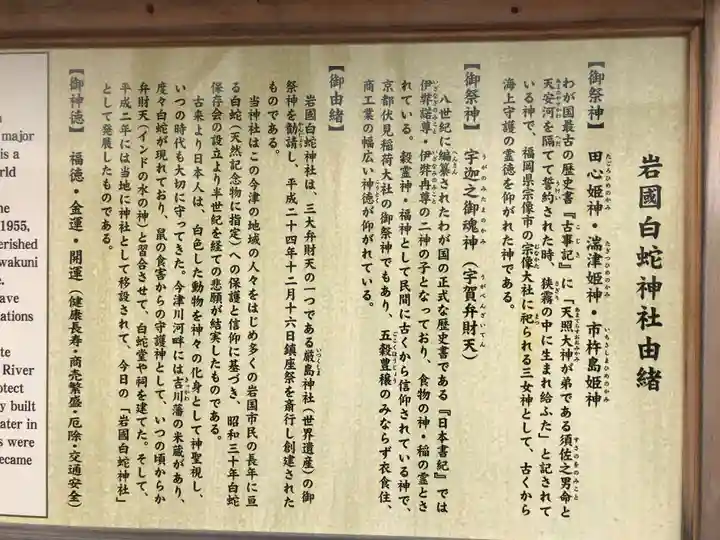 岩國白蛇神社由緒
【御祭神】 田心姫神・湍津姫神・市杵島姫神
たごりひめのかみ たぎつひめのかみ いちきしまひめのかみ
わが国最古の歴史書『古事記』に「天照大神が弟である須佐之男命と
天安河を隔てて誓約された時、狭霧の中に生まれ給ふた」と記されて
いる神で、福岡県宗像市の宗像大社に祀られる三女神として、古くから
海上守護の霊徳を仰がれた神である。
【御祭神】 宇迦之御魂神(宇賀弁財天)
うがのみたまのかみ うがべんざいてん
八世紀に編纂されたわが国の正式な歴史書である『日本書紀』では
伊弉諾尊・伊弉冉尊の二神の子となっており、食物の神・稲の霊とさ
れている。穀霊神・福神として民間に古くから信仰されている神で、
京都伏見稲荷大社の御祭神でもあり、五穀豊穣のみならず衣食住、
商工業の幅広い神徳が仰がれている。
【御由緒】
岩国白蛇神社は、三大弁財天の一つである厳島神社(世界遺産)の御
祭神を勧請し、平成二十四年十二月十六日鎮座祭を斎行し創建された
ものである。
当神社はこの今津の地域の人々をはじめ多くの岩国市民の長年に亘
る白蛇(天然記念物に指定)への保護と信仰に基づき、昭和三十年白蛇
保存会の設立より半世紀を経ての悲願が結実したものである。
古来より日本人は、白色した動物を神々の化身として神聖視し、
いつの時代も大切に守ってきた。今津川河畔には吉川藩の米蔵があり、
度々白蛇が現れており、鼠の食害からの守護神として、いつの頃からか
弁財天(インドの水の神)と習合させて、白蛇堂や祠を建てた。そして、
平成二年には当地に神社として移設されて、今日の「岩國白蛇神社」
として発展したものである。
【御神徳】 福徳・金運・開運(健康長寿・商売繁盛・厄除・交通安全)
major
is a
world
the
1955,
cherished
Iwakuni
have
nations
River
protect
built
water in
were
became